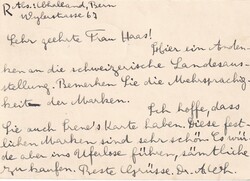 R Als. Uhlland, Bern
Wylerstrasse 67
Sehr geehrte Frau Haas!
Hier ein Anden-
ken an die schweizerische Landesaus-
stellung. Bemerken Sie die Mehrsprachig-
keit der Marken. Ich hoffe, dass
Sie auch Irene's Karte haben. Diese fest-
lichen Marken sind sehr schön. Es wür-
de aber ins Uferlose führen, sämtliche
zu kaufen. Beste Grüsse. Dr.